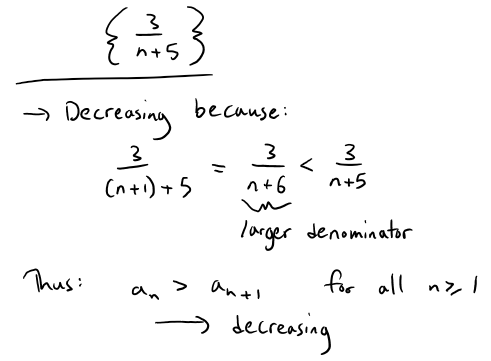 { 3/(n+5) }
→ Decreasing because:
3/((n+1)+5) = 3/(n+6) < 3/(n+5)
larger denominator
Thus: aₙ > aₙ₊₁ for all n ≥ 1
→ decreasing